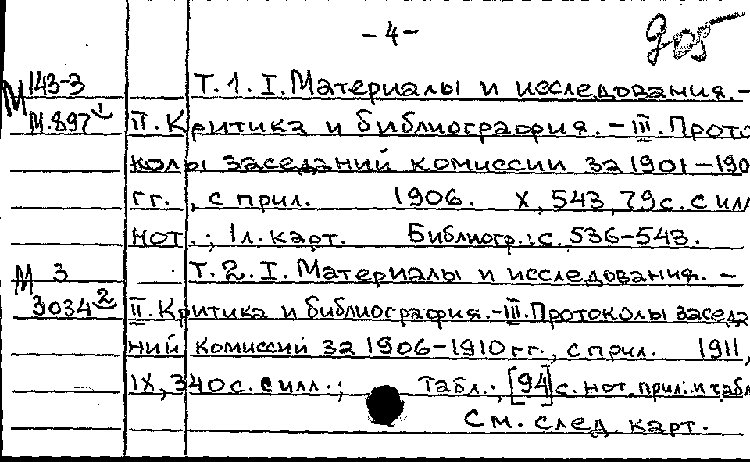 -4- 905
М 143-3 Т.1. I. Материалы и исследования.-
М.897 1 II. Критика и библиография.-III. Прото
колы заседаний комиссии за 1901-190
гг., с прил. 1906. X, 543, 79 с. с илл
нот.; 1 л. карт. Библиогр.: с. 536-543.
М 3 Т.2. I. Материалы и исследования.-
3034 2 II. Критика и библиография.-III. Протоколы заседа
ний комиссий за 1906-1910 гг., с прил. 1911,
IX, 340 с. с илл.; табл.; [94] с. нот. прил. и табл
См. след. карт.